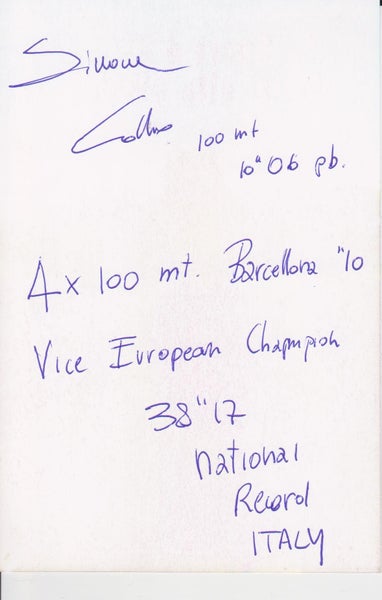 Simone
Collio
100 mt
10"06 pb.
4x100 mt. Barcellona "10
Vice European Champion
38"17
National
Record
ITALY